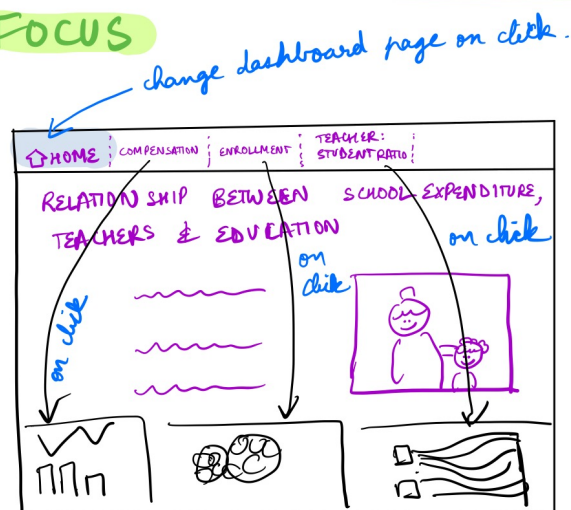 FOCUS
change dashboard page on click.
HOME
COMPENSATION
ENROLLMENT
TEACHER:
STUDENT RATIO
RELATIONSHIP BETWEEN SCHOOL EXPENDITURE,
TEACHERS & EDUCATION
on click
on
click
on click